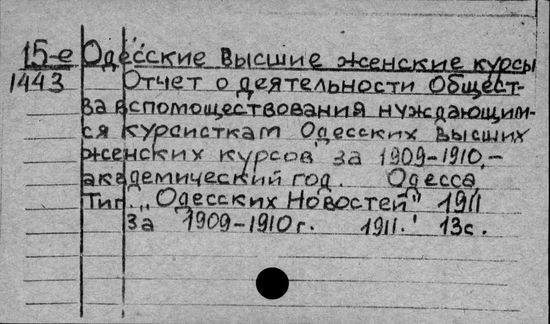 15-е Одесские высшие женские курсы
1443 Отчет о деятельности Общест-
ва вспомоществования нуждающим-
ся курсисткам Одесских высших
женских курсов за 1909-1910,-
академический год. Одесса,
Тип. „Одесских Новостей" 1911
за 1909-1910г. 1911. 13с.